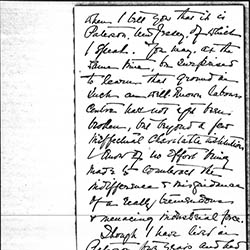 when I tell you that it is
Paterson, New Jersey, of which
I speak. You may, at the
same time, be surprised
to learn that ground in
such an well known labour
Centre has not yet been
broken, but beyond a few
ineffectual Charitable institutions
I know of no effort being
made to the
indifference & misguidance
of a really tremendous
& menacing industrial force.
Though I have lived in
Paterson but years and had